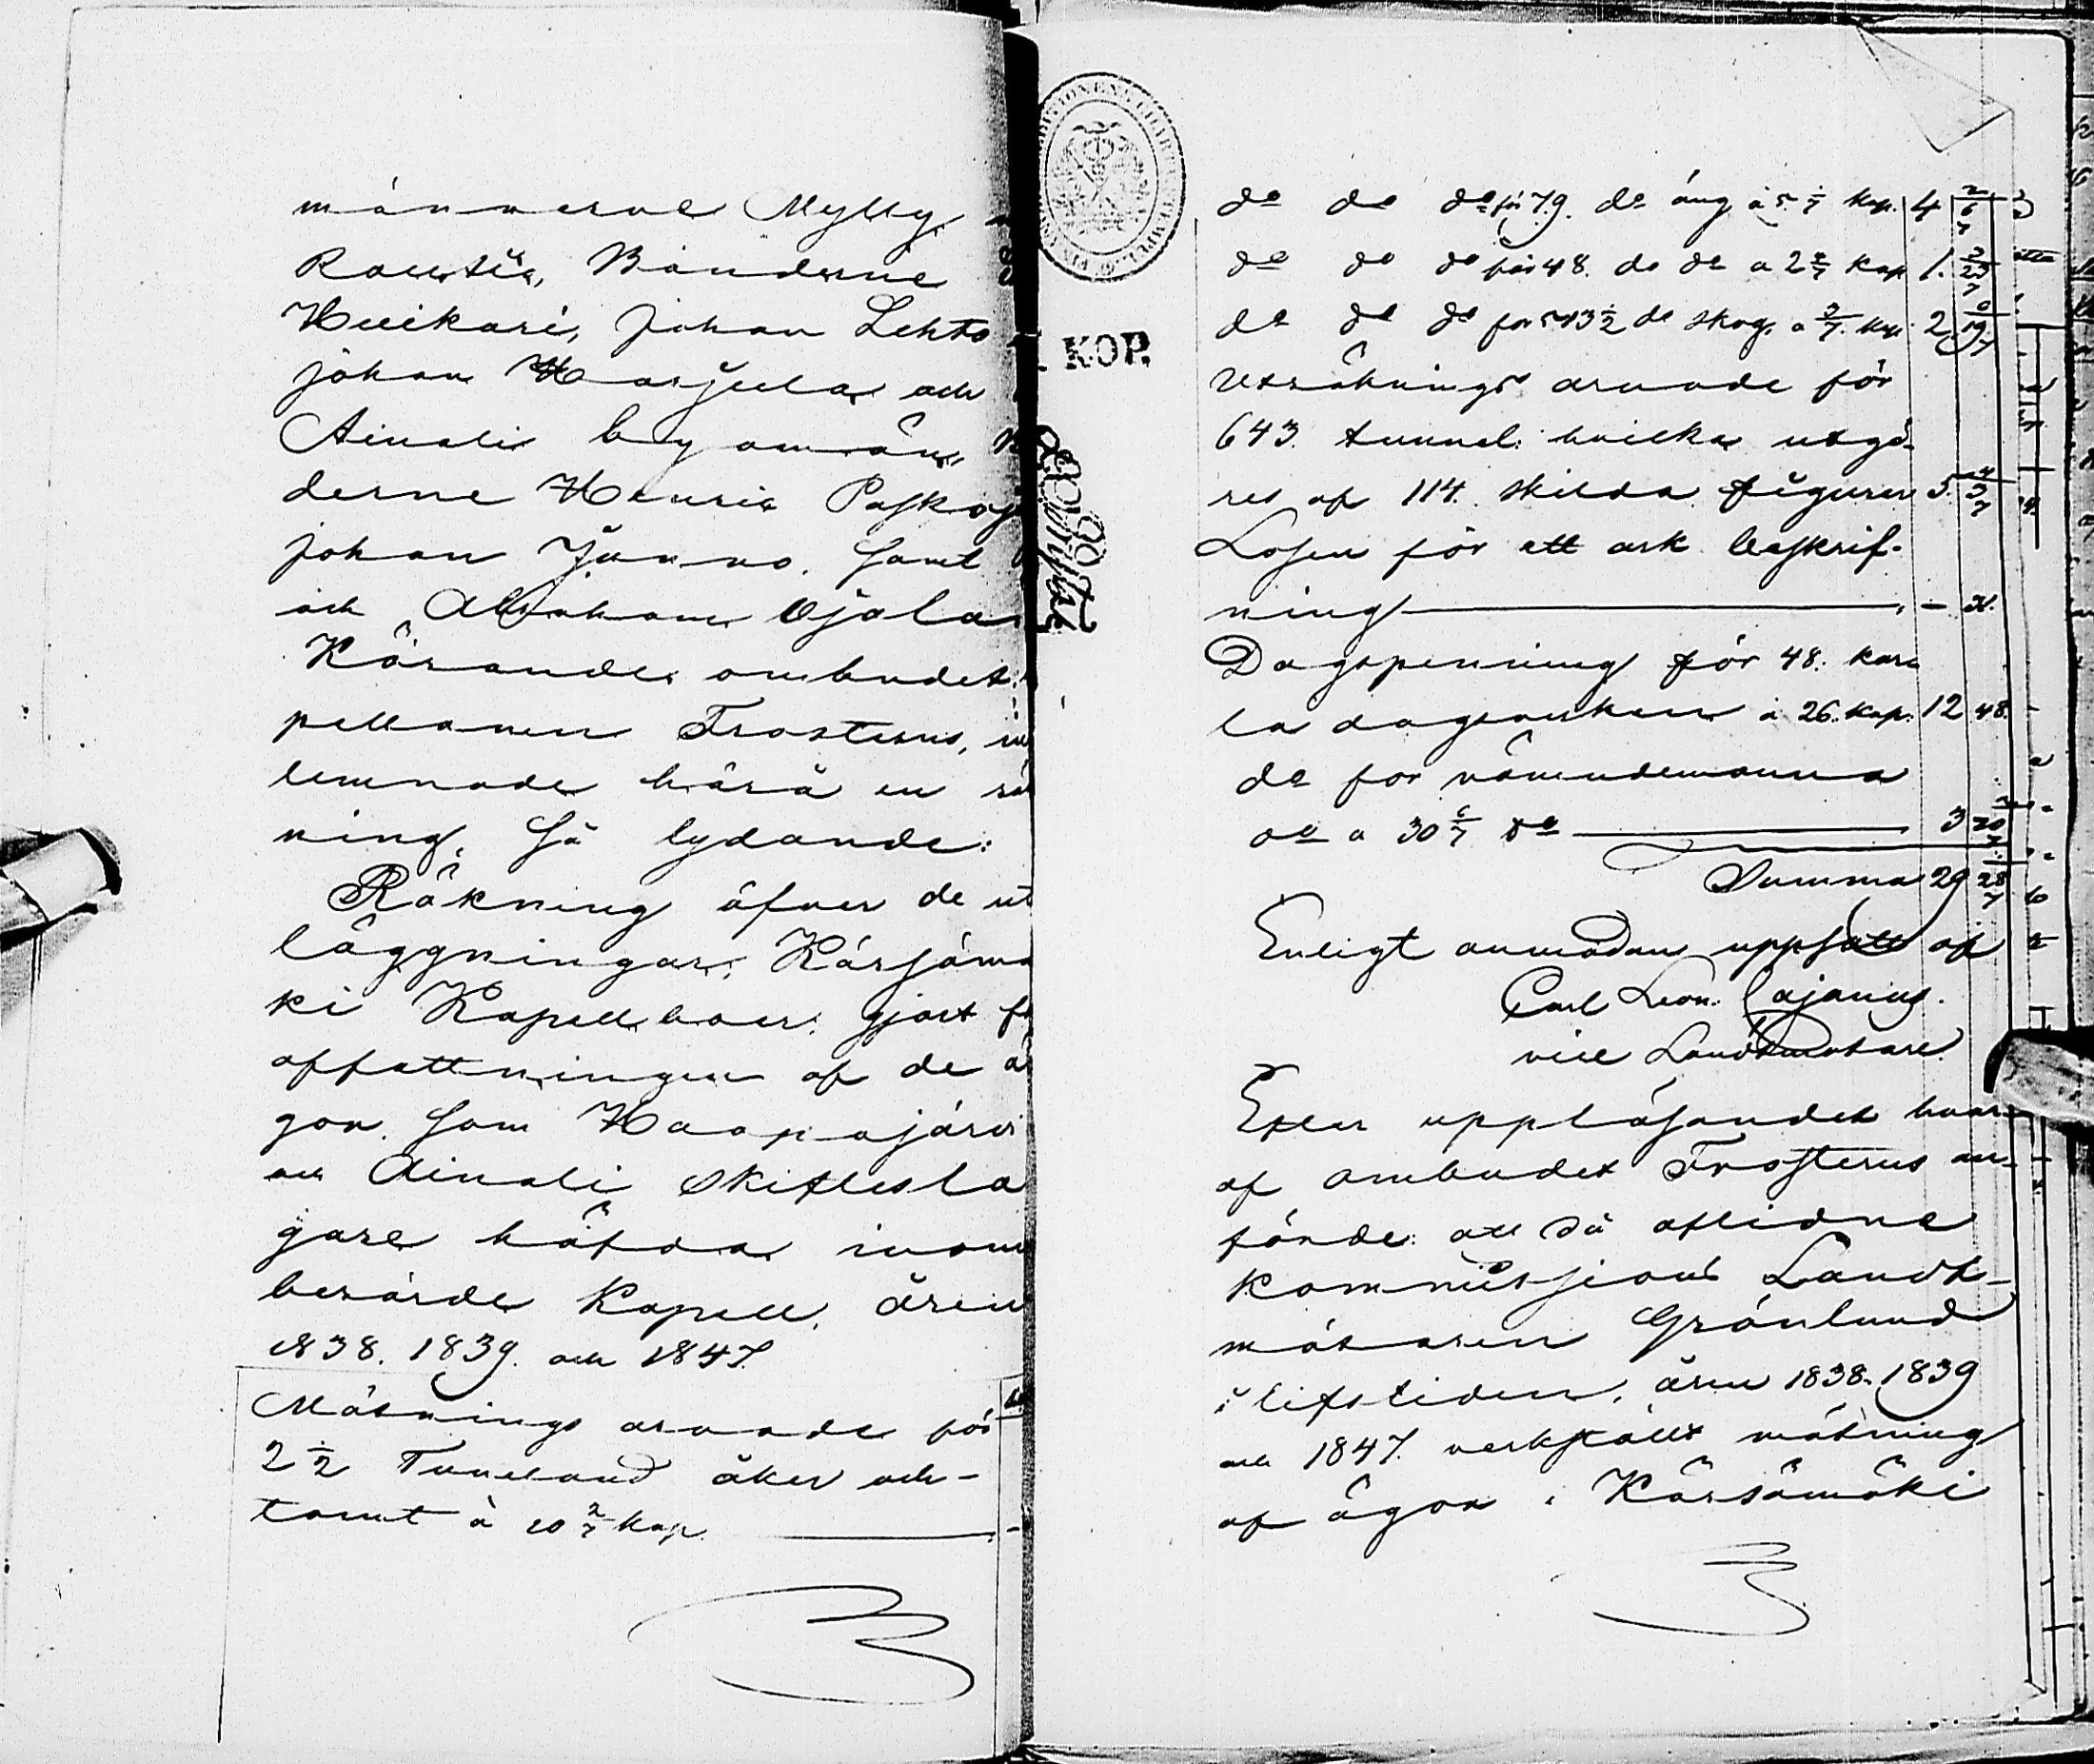 männerne Mylly
Rautio, Bönderne
Huikari, Johan Lehto
Johan Harjula och
Ainali byamän,
derne Henric Pask
Johan Junno. samt
och Abraham Ojala
Kärande ombudet
pellanen Frosterus, in
lemnade härå en rä
ning, så lydande:
Räkning öfver de ut
läggningar, Kärsäma
ki Kapellboer. gjort f
affattningen af de ä
gor, som Haapajärvi
och Ainali Skifteslа
gare häfda inom
berörde Kapell, åren
1838. 1839. och 1847.
Mätnings arvode för
2 1/2 Tunneland åker och-
tomt à 10 2/7 kop.
KOP.
do do do för 79. do äng à 5 1/7 kop. 4 6 2/7
do do do för 48. do do a 2 4/7 kop 1. 23 3/7
do do do för 543 1/2 do skog. a 3/7. kop. 2 19
Uträknings arvode för
643. tunnel: hvilka utgö-
res af 114. skilda figurer 5.
Lösen för ett ark beskrif-
ning
Dagspenning för 48. kara
la dagsverken à 26. kop. 12 48.
do för nämndemanna
do a 30 6/7 do 3
Summa 29
Enligt anmodan uppsatt af
Carl Leon. Cajanus.
vice Landtmätare.
Efter uppläsandet hvar-
af ombudet Frosterus an-
förde: att då aflidne
Kommissions Landt-
mätaren Grönlund
i lifstiden, åren 1838. 1839
och 1847. verkställt mätning
af ägor i Kärsämäki